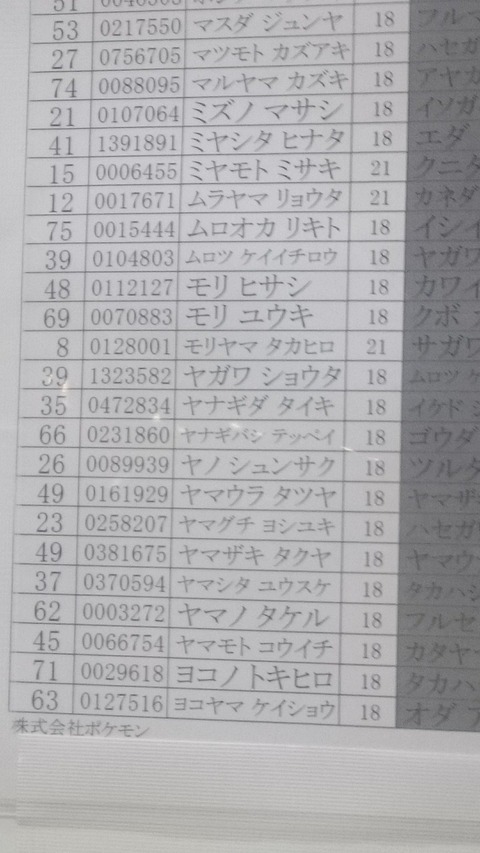 51
53 0217550 マスダ ジュンヤ 18 フルマ
27 0756705 マツモト カズアキ 18 ハセガ
74 0088095 マルヤマ カズキ 18 アヤカ
21 0107064 ミズノ マサシ 18 イソガ
41 1391891 ミヤシタ ヒナタ 18 エダ
15 0006455 ミヤモト ミサキ 21 クニタ
12 0017671 ムラヤマ リョウタ 21 カネダ
75 0015444 ムロオカ リキト 18 イシイ
39 0104803 ムロツ ケイイチロウ 18 ヤガワ
48 0112127 モリ ヒサシ 18 カワイ
69 0070883 モリ ユウキ 18 クボ
8 0128001 モリヤマ タカヒロ 21 サガワ
39 1323582 ヤガワ ショウタ 18 ムロツ ケ
35 0472834 ヤナギダ タイキ 18 イケド ミ
66 0231860 ヤナギバシ テッペイ 18 ゴウダ
26 0089939 ヤノ シュンサク 18 ツルタ
49 0161929 ヤマウラ タツヤ 18 ヤマザ
23 0258207 ヤマグチ ヨシユキ 18 ハセガ
49 0381675 ヤマザキ タクヤ 18 ヤマウ
37 0370594 ヤマシタ ユウスケ 18 タカハシ
62 0003272 ヤマノ タケル 18 フルセ
45 0066754 ヤマモト コウイチ 18 カタヤ
71 0029618 ヨコノ トキヒロ 18 タカハ
63 0127516 ヨコヤマ ケイショウ 18 オダ
株式会社ポケモン